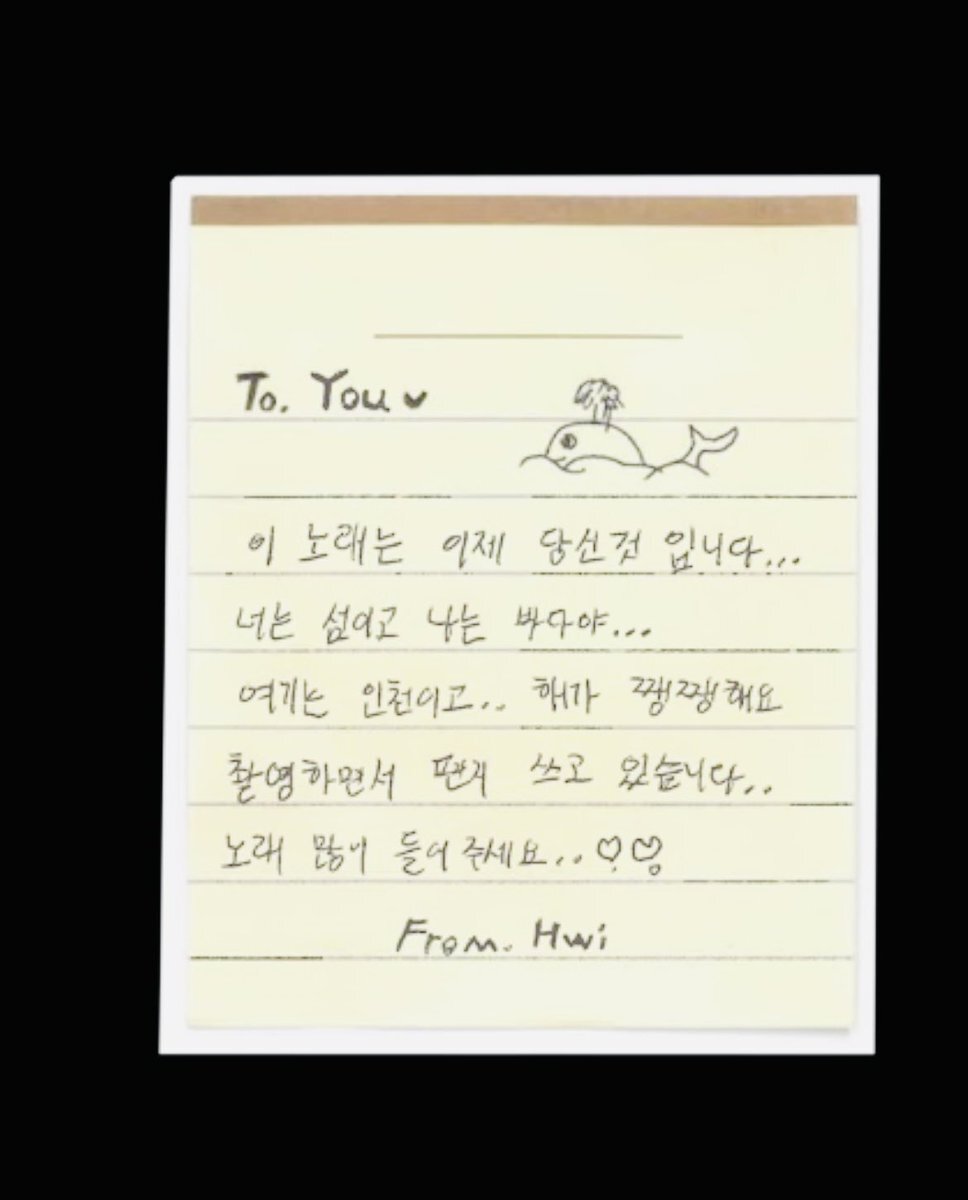 To. You ♥
이 노래는 이제 당신것 입니다...
너는 섬이고 나는 바다야...
여기는 인천이고.. 해가 쨍쨍해요
촬영하면서 편지 쓰고 있습니다..
노래 많이 들어주세요..♡♡
From. Hwi